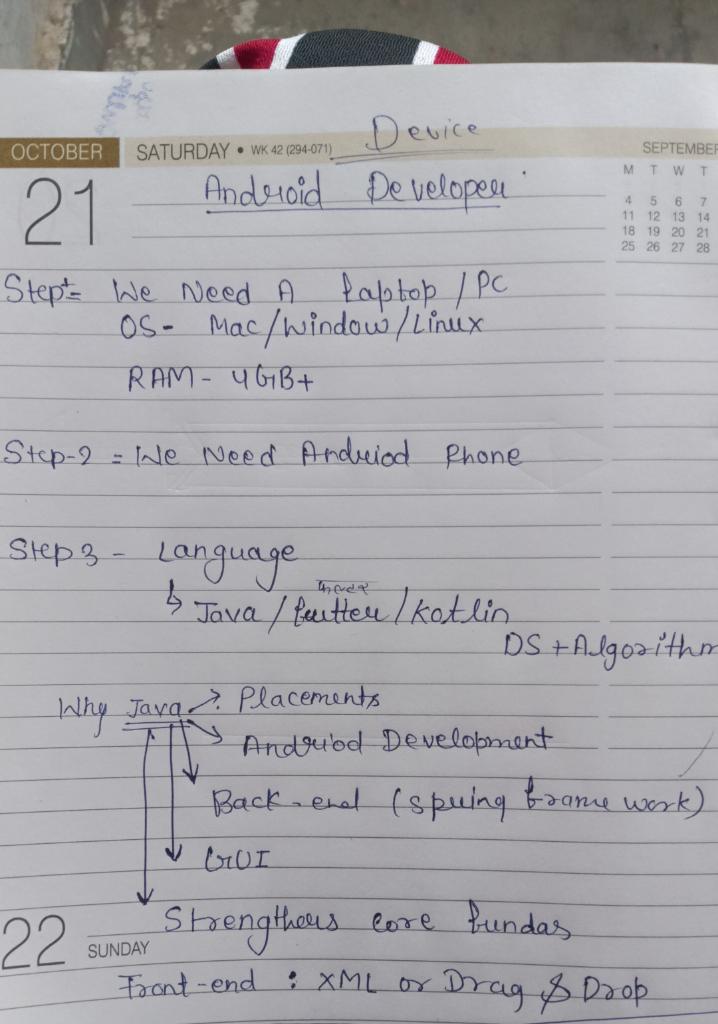 Device
OCTOBER SATURDAY • WK 42 (294-071) SEPTEMBER
21 Android Developer
M T W T
4 5 6 7
11 12 13 14
18 19 20 21
25 26 27 28
Step1= We Need A Laptop / PC
OS- Mac/Window/Linux
RAM- 4GB+
Step-2 = We Need Andriod Phone
Step 3 - Language
Java / flutter / Kotlin
DS + Algorithm
Why Java → Placements
Andriod Development
Back-end (spring frame work)
GUI
Strengthens core fundas
22 SUNDAY
Front-end : XML or Drag & Drop